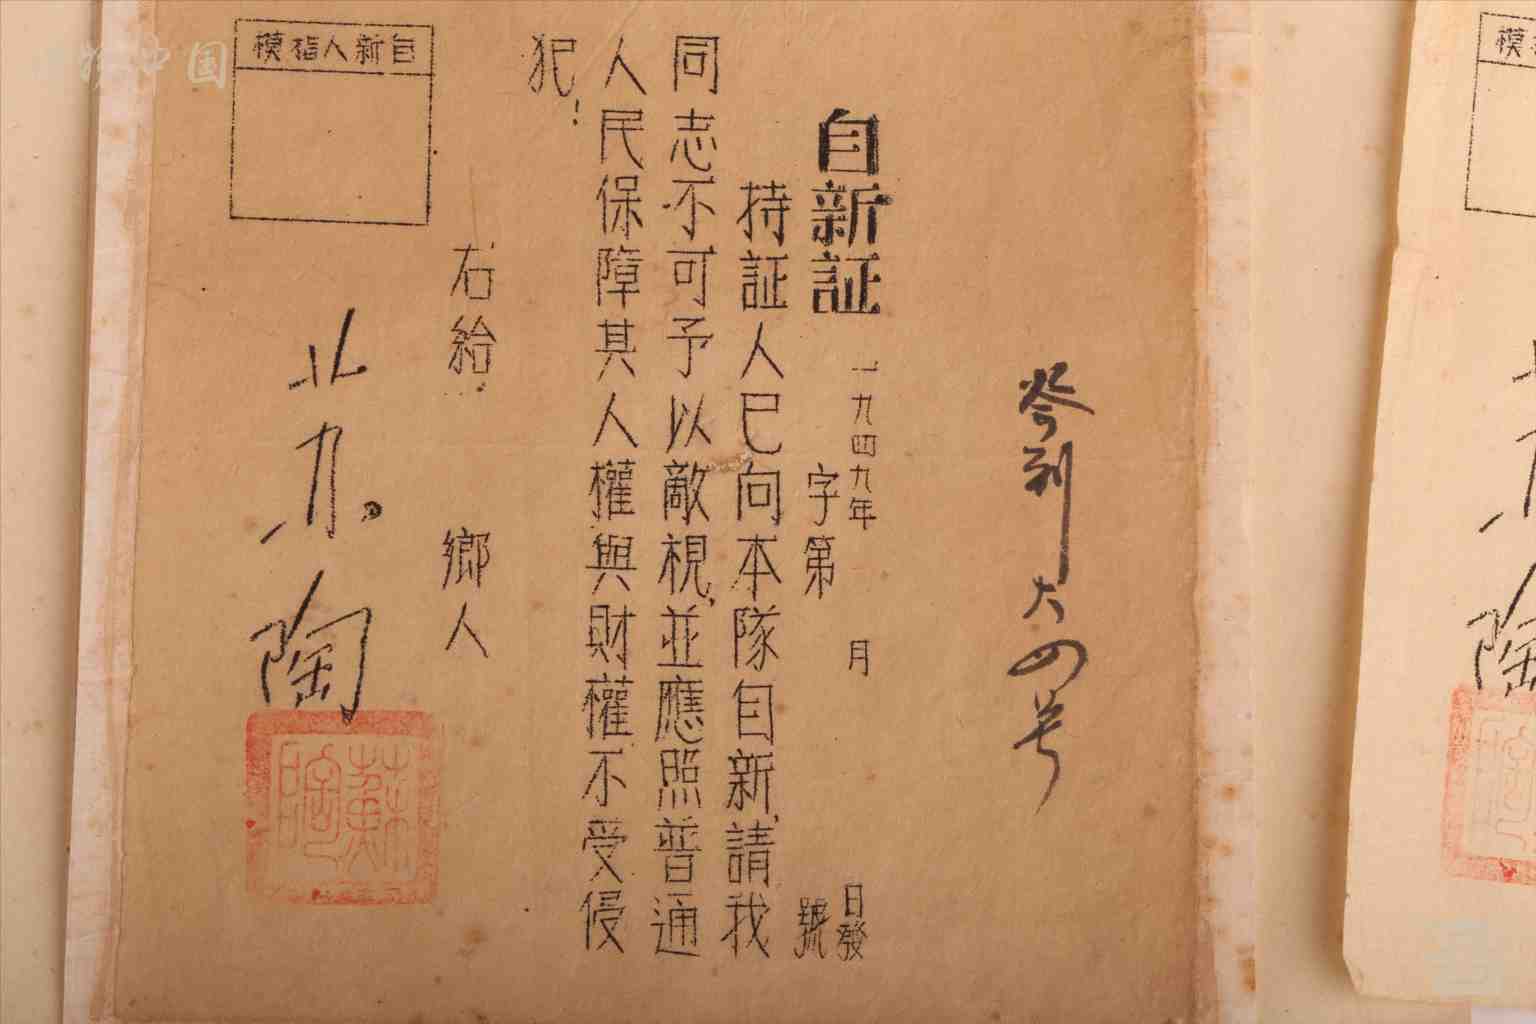 登列六四号
自新証
一九四九年 月 日發
字第 號
持証人已向本隊自新,請我
同志不可予以敵視,並應照普通
人民保障其人權與財權不受侵
犯!
右給 鄉人
陶
蘇陶
自新人指模
中国